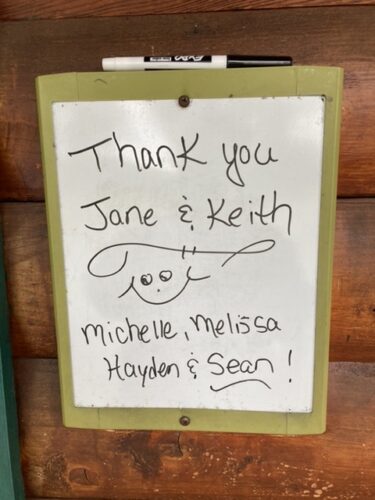 Thank you
Jane & Keith
Michelle, Melissa
Hayden & Sean!